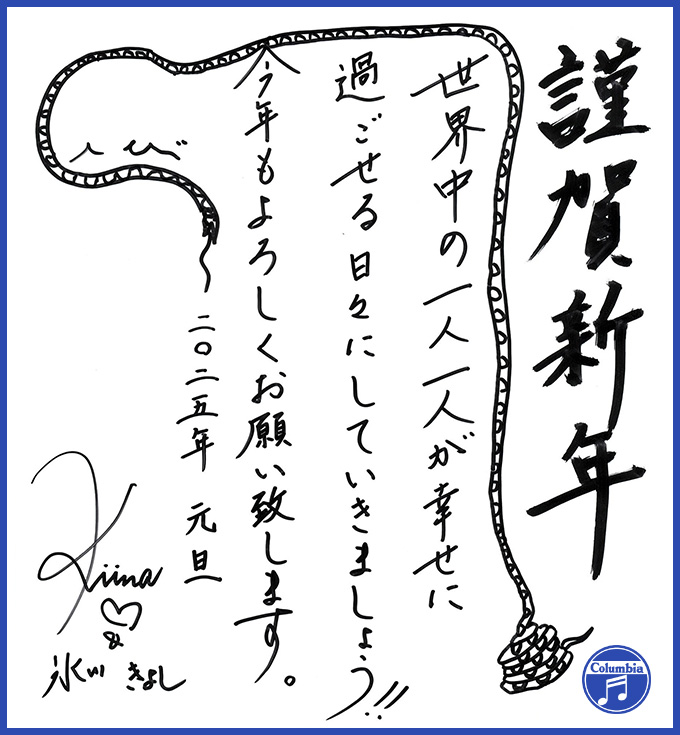 謹賀新年
世界中の一人一人が幸せに
過ごせる日々にしていきましょう!!
今年もよろしくお願い致します。
へび
二〇二五年 元旦
Kiina
♡
&
氷川きよし
Columbia